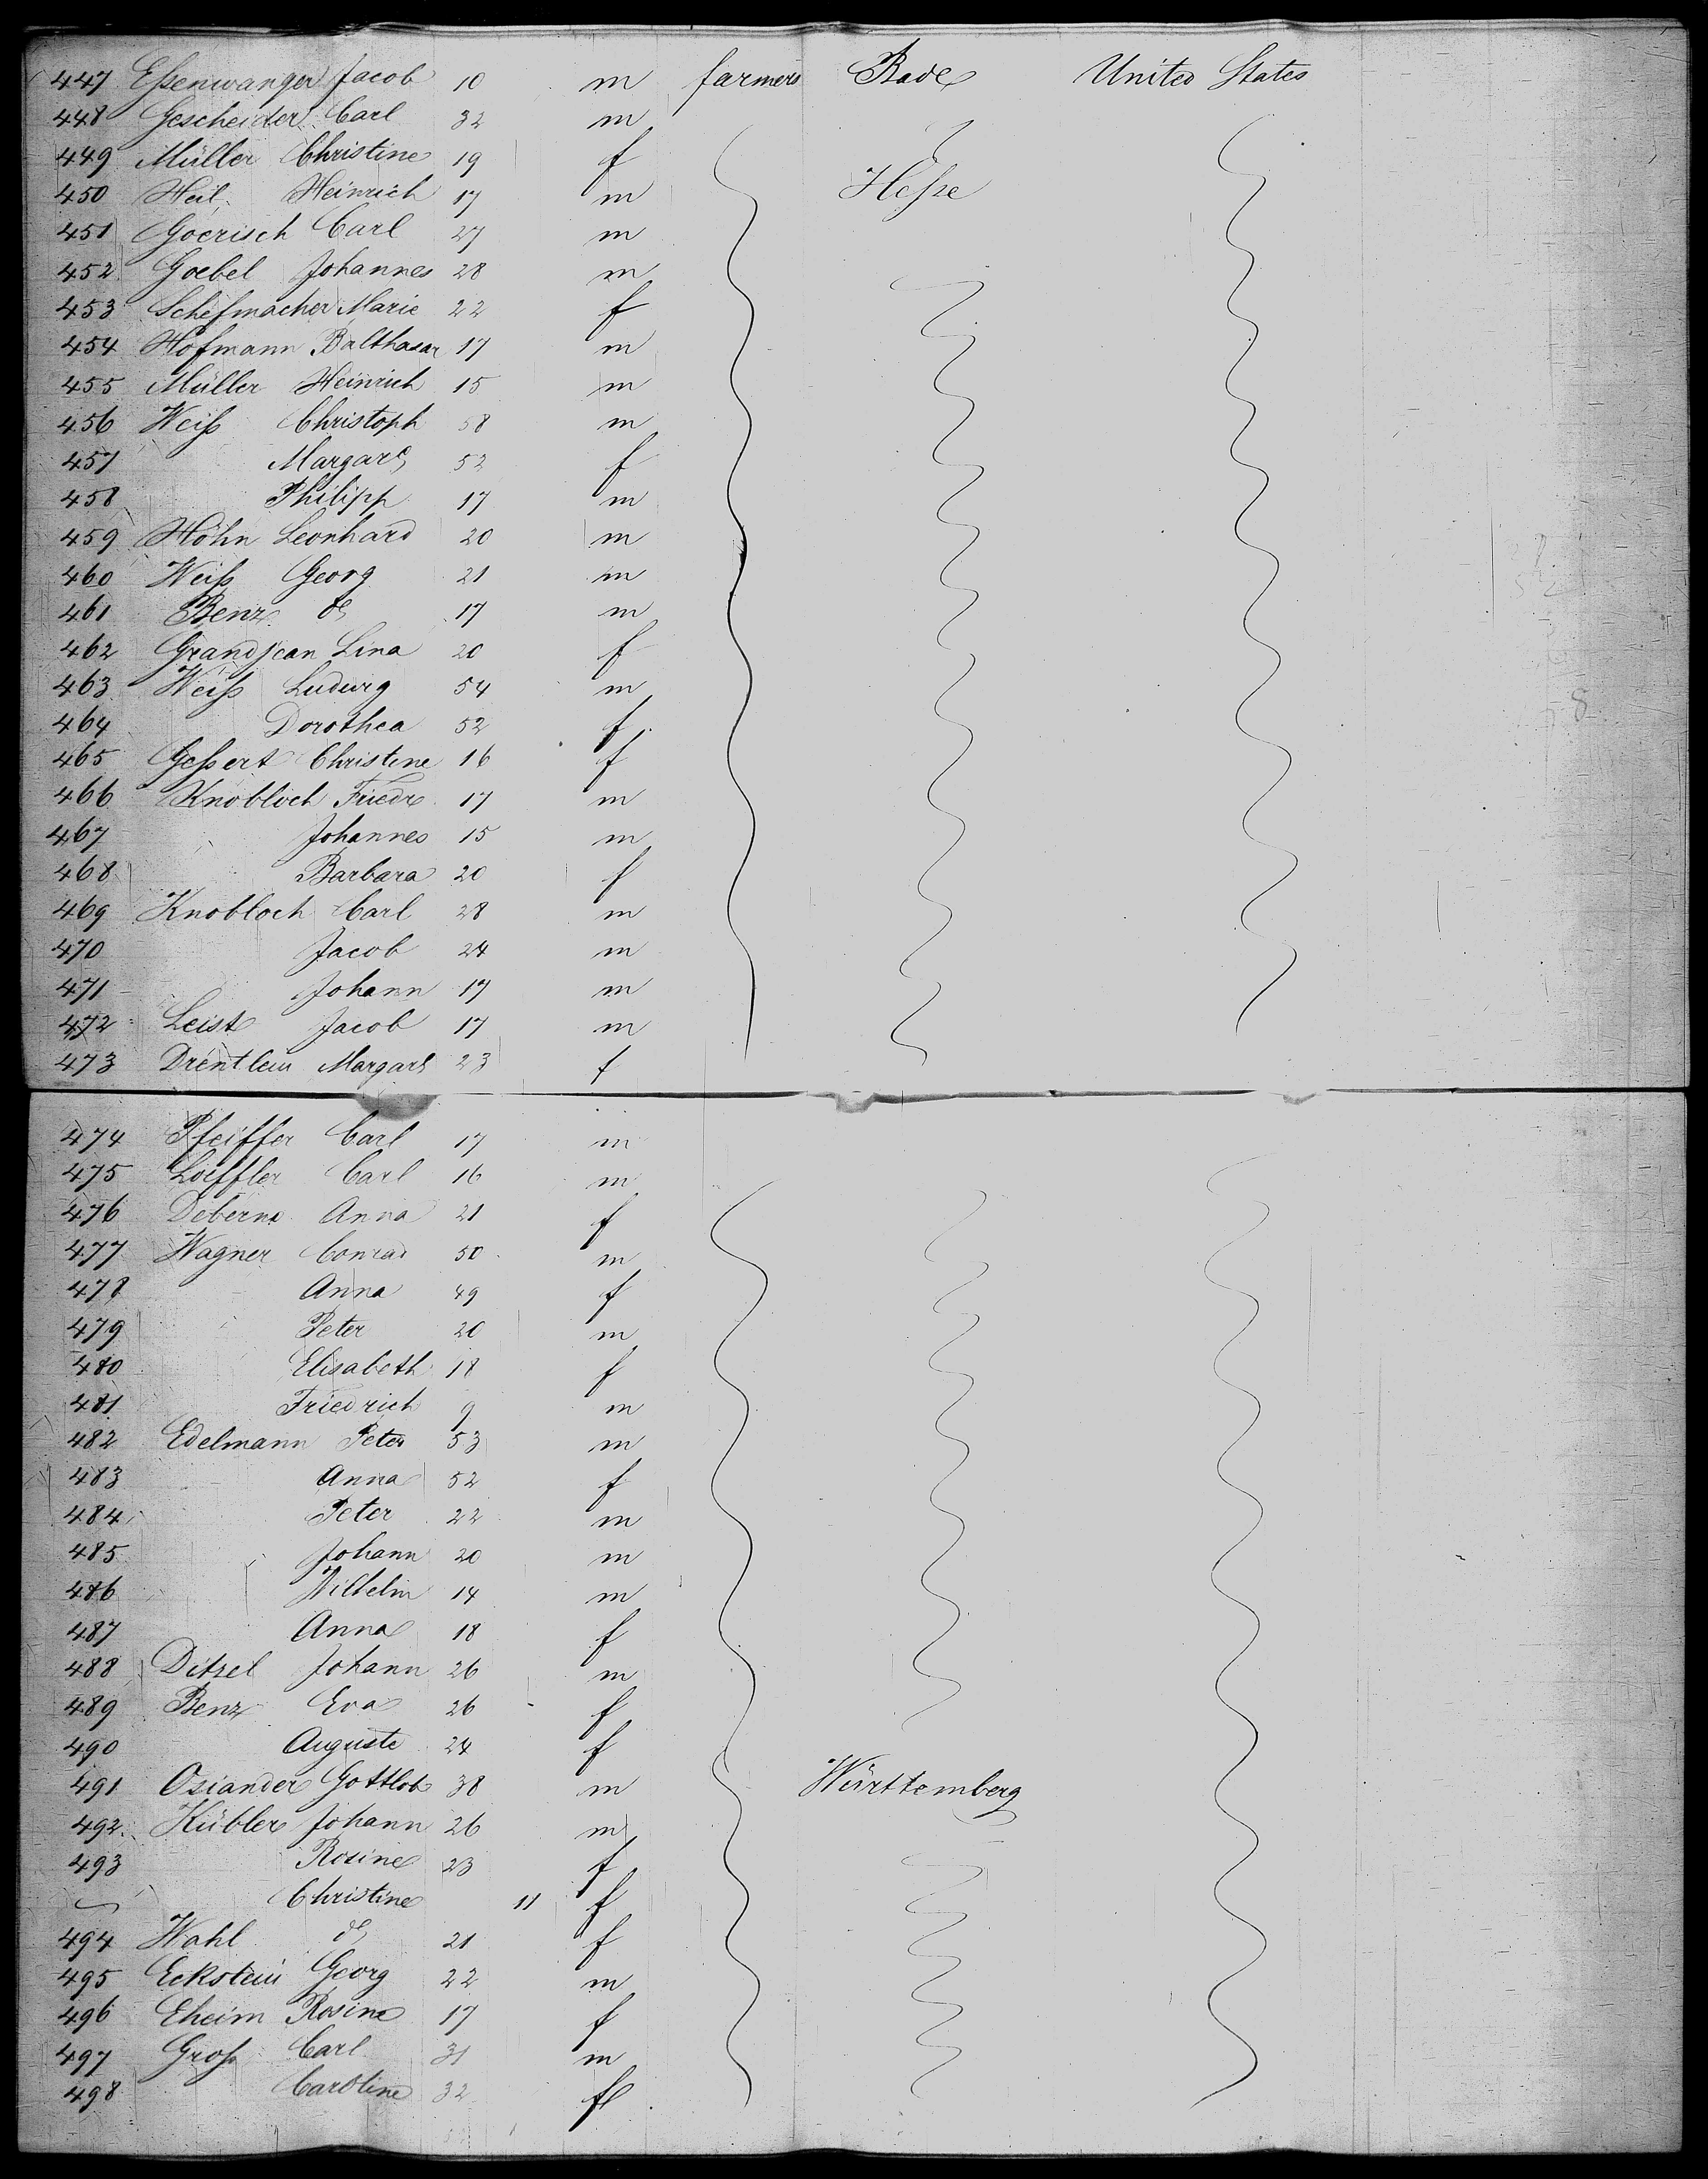 447 Eßenwanger Jacob 10 m farmers Bade United States
448 Gescheider Carl 32 m
449 Müller Christine 19 f
450 Heil Heinrich 17 m Heße
451 Goerisch Carl 27 m
452 Goebel Johannes 28 m
453 Schefmacher Marie 22 f
454 Hofmann Balthasar 17 m
455 Müller Heinrich 15 m
456 Weiß Christoph 58 m
457 Margare 52 f
458 Philipp 17 m
459 Höhn Leonhard 20 m
460 Weiß Georg 21 m
461 Benz do 17 m
462 Grandjean Lina 20 f
463 Weiß Ludwig 54 m
464 Dorothea 52 f
465 Geßert Christine 16 f
466 Knobloch Friedr 17 m
467 Johannes 15 m
468 Barbara 20 f
469 Knobloch Carl 28 m
470 Jacob 24 m
471 Johann 17 m
472 Leist Jacob 17 m
473 Drentlein Margare 23 f
474 Pfeiffer Carl 17 m
475 Loeffler Carl 16 m
476 Anna 21 f
477 Wagner Conrad 50 m
478 Anna 49 f
479 Peter 20 m
480 Elisabeth 18 f
481 Friedrich 9 m
482 Edelmann Peter 53 m
483 Anna 52 f
484 Peter 22 m
485 Johann 20 m
486 Wilhelm 14 m
487 Anna 18 f
488 Ditzel Johann 26 m
489 Benz Eva 26 f
490 Auguste 24 f
491 Osiander Gottlob 38 m Württemberg
492 Kübler Johann 26 m
493 Rosine 23 f
Christine 11 f
494 Wahl do 21 f
495 Eckstein Georg 22 m
496 Eheim Rosine 17 f
497 Groß Carl 31 m
498 Caroline 32 f